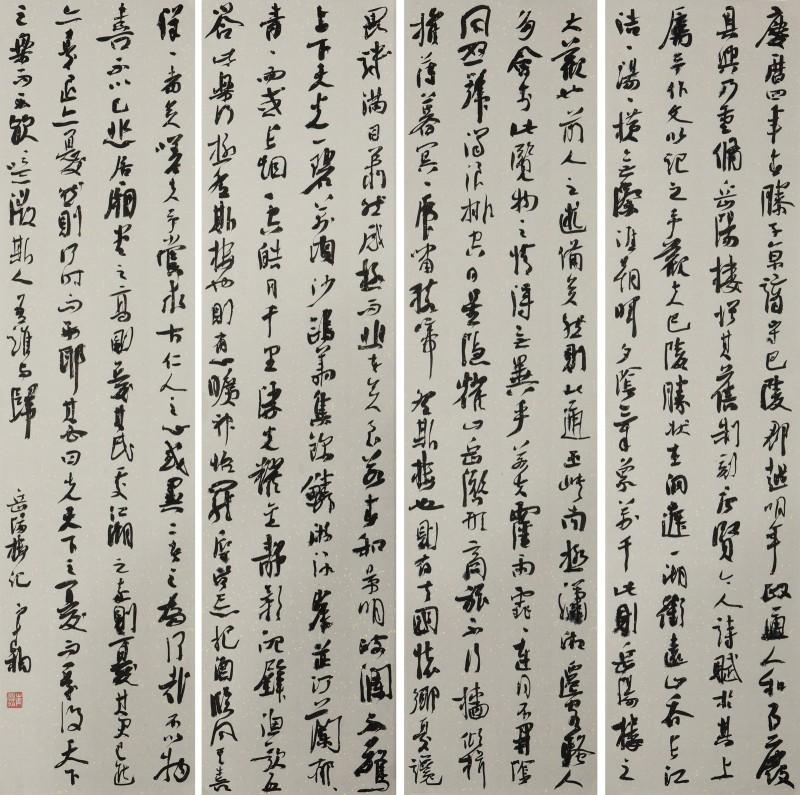 慶曆四年春滕子京謫守巴陵郡越明年政通人和百廢
具興乃重修岳陽樓增其舊制刻唐賢今人詩賦於其上
屬予作文以記之予觀夫巴陵勝狀在洞庭一湖銜遠山吞長江
浩浩湯湯橫無際涯朝暉夕陰氣象萬千此則岳陽樓之
大觀也前人之述備矣然則北通巫峽南極瀟湘遷客騷人
多會於此覽物之情得無異乎若夫霪雨霏霏連月不開陰
風怒號濁浪排空日星隱耀山岳潛形商旅不行檣傾楫
摧薄暮冥冥虎嘯猿啼登斯樓也則有去國懷鄉憂讒
畏譏滿目蕭然感極而悲者矣至若春和景明波瀾不驚
上下天光一碧萬頃沙鷗翔集錦鱗游泳岸芷汀蘭郁郁
青青而或長煙一空皓月千里浮光耀金靜影沉璧漁歌互
答此樂何極登斯樓也則有心曠神怡寵辱皆忘把酒臨風其喜
洋洋者矣嗟夫予嘗求古仁人之心或異二者之為何哉不以物
喜不以己悲居廟堂之高則憂其民處江湖之遠則憂其君是進
亦憂退亦憂然則何時而樂耶其必曰先天下之憂而憂後天下
之樂而樂歟噫微斯人吾誰與歸
岳陽樓記